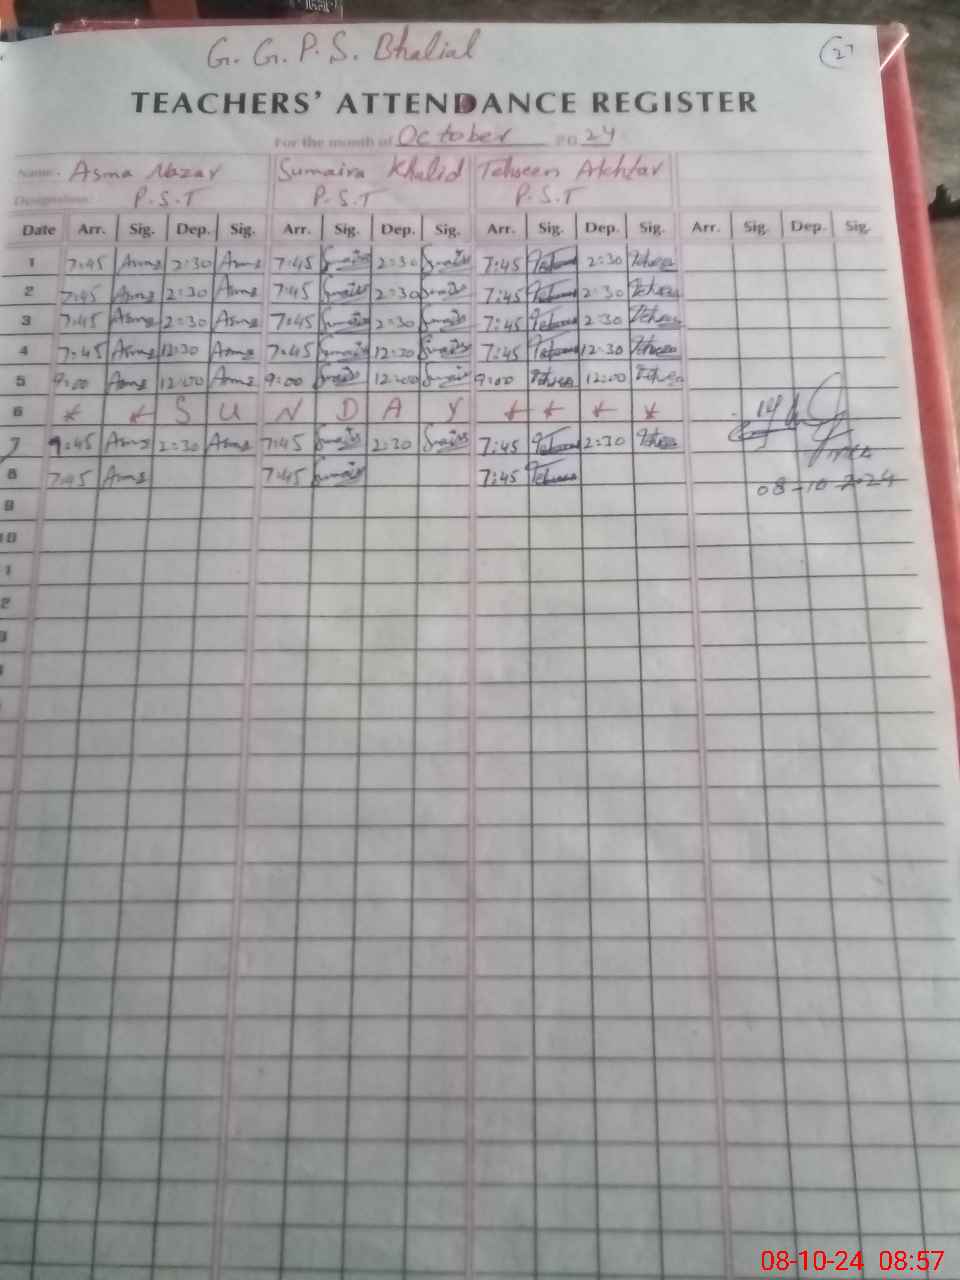 G. G. P. S. Bhalial
27
TEACHERS' ATTENDANCE REGISTER
For the month of October 20 24
Name. Asma Nazar Sumaira Khalid Tehseen Akhtar
Designation: P.S.T P.S.T P.S.T
Date Arr. Sig. Dep. Sig. Arr. Sig. Dep. Sig. Arr. Sig. Dep. Sig. Arr. Sig. Dep. Sig.
1 7:45 Asma 2:30 Asma 7:45 Sumaira 2:30 Sumaira 7:45 Tehseen 2:30 Tehseen
2 7:45 Asma 2:30 Asma 7:45 Sumaira 2:30 Sumaira 7:45 Tehseen 2:30 Tehseen
3 7:45 Asma 2:30 Asma 7:45 Sumaira 2:30 Sumaira 7:45 Tehseen 2:30 Tehseen
4 7:45 Asma 12:30 Asma 7:45 Sumaira 12:30 Sumaira 7:45 Tehseen 12:30 Tehseen
5 9:00 Asma 12:00 Asma 9:00 Sumaira 12:00 Sumaira 9:00 Tehseen 12:00 Tehseen
6 * * S U N D A Y * * * *
7 9:45 Asma 2:30 Asma 7:45 Sumaira 2:30 Sumaira 7:45 Tehseen 2:30 Tehseen
8 7:45 Asma 7:45 Sumaira 7:45 Tehseen
08-10-2024
9
10
1
2
3
08-10-24 08:57